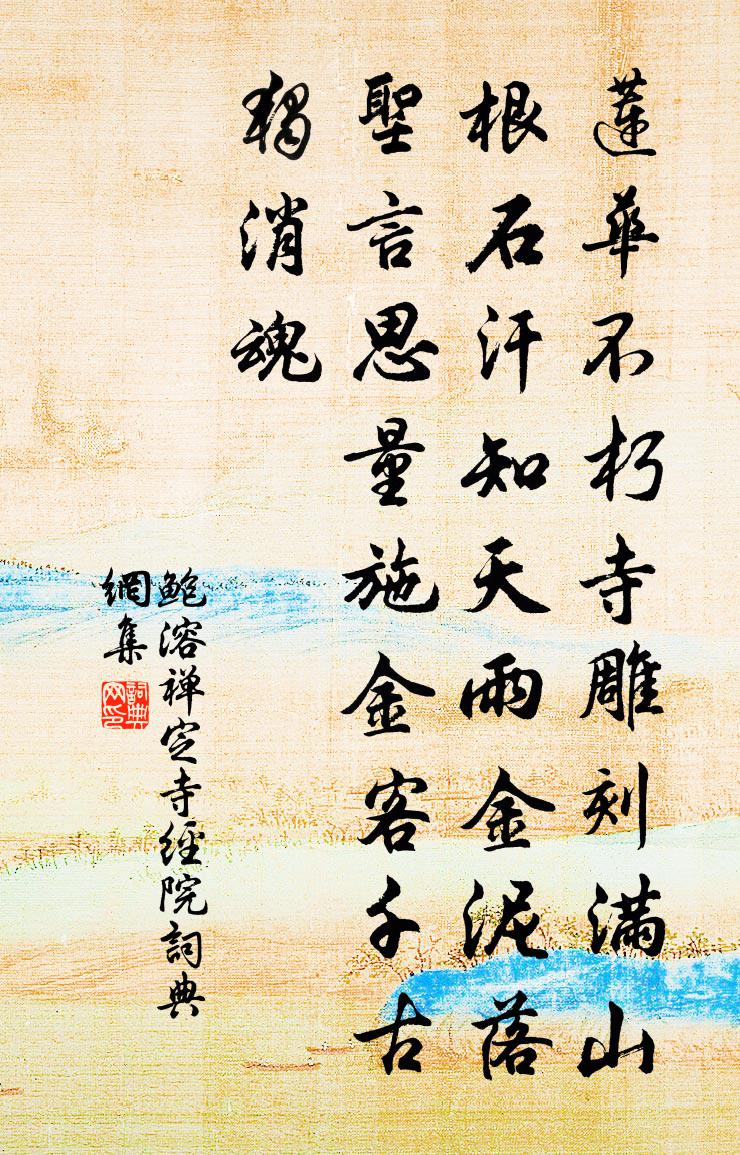 蓮華不朽寺雕刻滿山
根石汗知天雨金泥落
聖言思量施金客千古
獨消魂
鮑溶禅定寺經院詞典
網集
詞典
网印